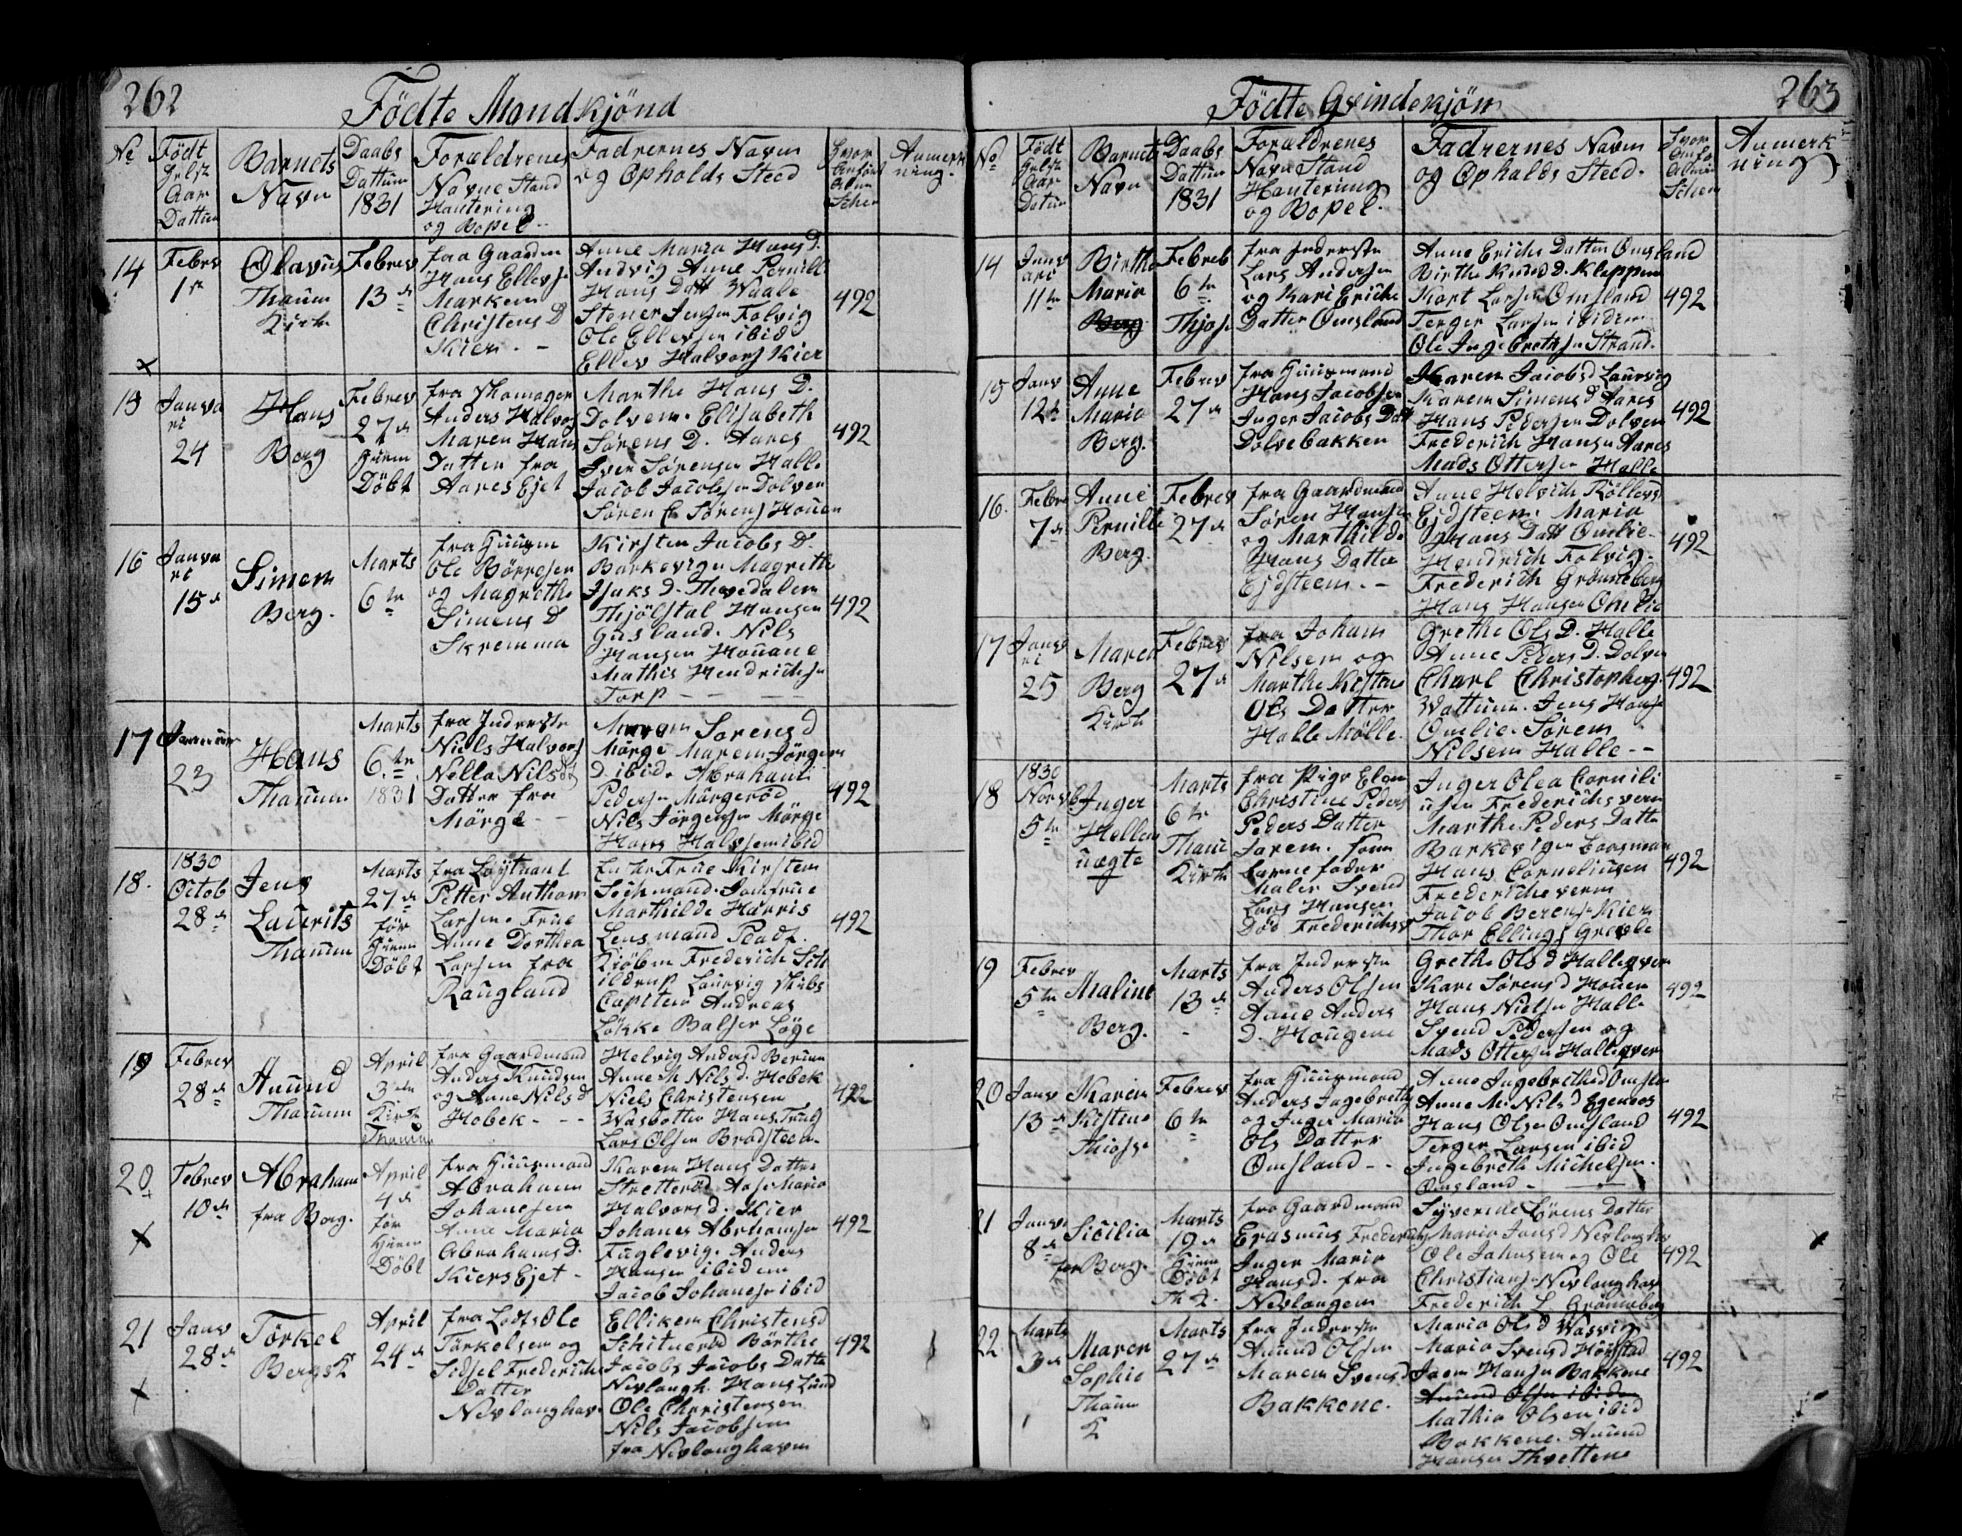 262
Födte Mandkjönd
No
Födt
Aar
Dattum
Barnets
Navn
Daabs
Dattum
1831
Forældrenes
Navne Stand
Hantering
og Bopel
Fadrernes Navn
og Opholds Sted
Anmerk
ning.
14
Febrv
1st
Olavus
Thaum
Kirke
Febrev
13de
fra Gaarden
Hans Ellevs
Marken
Christens D
Kier. -
Anne Maria Hans D.
Andvig Anne Pernill
Hans Datt Waale
Stener Jensen Folvig
Ole Ellevsen ibid
Ellev Halvors Kier
492
15
Janva
ri
24
Hans
Berg
Febrev
27de
Hiem
Döbt
fra
Anders Halvors
Maren Hans
Datter fra
Aares Ejet
Marthe Hans D.
Dolven. Elisabeth
Sörens D. Aares
Iver Sörensen Halle
Jacob Jacobsen Dolven
Sören C Sörens Houen
492
16
Janva
ri
15de
Simen
Berg.
Marts
6te
fra Huusm
Ole Börresen
og Magrethe
Simens D
Skremma
Kirsten Jacobs D.
Barkevigen Magrethe
Isaks D. Thvedalen
Thjölstal Hansen
Gusland. Nils
Hansen Houane
Mathis Hendrichsen
Torp
492
17
Januar
23
Hans
Thaum
Marts
6te
1831
fra Inderste
Niels Halvors
Nella Nils
Datter fra
Mörge
Maren Sörens d
Mörge Maren Jörgens
D. ibid. Abraham
Pedersen Mörgeröd
Nils Jörgensen Mörge
Hans Halvsen ibid
492
18.
1830
Octob
28de
Jens
Laurits
Thaum
Marts
27de
för
Hiem
Döbt
fra Löytnant
Petter Anthon
Larsen. Frue
Anne Dorthea
Larsen fra
Raugland
Frue Kirsten
Sichmand. Jomfrue
Marthilde Harris
Lensmand Peadt.
Kiöbm Frederich Sch
ildrup Laurvig Skibs
Capitein Andreas
Løkke Balser Løge
492
19
Febrev
28de
Anund
Thaum
April
3die
Kirke
Thaum
fra Gaardmand
Anders Knudsen
og Anne Nils d
Hobek
Helvig Anders d Berum
Anne M Nils d. Hobek
Niels Christensen
Lars Olsen Brodsteen
492
20
Febrev
10de
Abraham
fra Berg.
April
4de
för
Hiem
Döbt
fra Huusmand
Abraham
Johanesen
Anne Maria
Abrahams D.
Kiers Ejet
Karen Hans Datter
Stretteröd Aase Maria
Halvors d. Kier
Johanes Abrhamsen
Fuglevig. Anders
Hansen ibidem
Jacob Johanesen ibid
492
21
Janv
28de
Torkel
Bergs K
April
24de
fra Lods Ole
Torkelsen og
Sidsel Frederichs
Datter
Nevlanghav.
Elliken Christens d
Börthe
Jacobs Jacobs Datter
Nevlangh. Hans Lund
Ole Christensen
Nils Jacobsen
fra Nevlanghaven
492
263
Födte Qvindekjön
No
Födt
Aar
Datum
Barnets
Navn
Daabs
Dattum
1831
Forældrenes
Navn Stand
Hantering
og Bopel.
Fadrernes Navn
og Opholds Sted.
Anmerk
ning
14
Janv
ari
11te
Birthe
Maria
Berg
Febreb
6te
Thjose
fra Inderste
Lars Andersen
og Kari Erichs
Datter Omsland
Anne Erichs Datter Omsland
Birthe Knud D. Kleppen
Kort Larsen Omsland
Terger Larsen ibidem
Ole Ingebrethsen Strand.
492
15
Janv
12te
Anne
Maria
Berg.
Febrev
27de
fra Huusmand
Hans Jacobsen
Inger Jacobs Datt
Dolvebakken
Karen Jacobs d Laurvig
Karen Simens d Aares
Hans Pedersen Dolven
Frederich Hansen Aares
Mads Ottersen Halle
492
16.
Febre
7de
Anne
Pernille
Berg.
Febrev
27de
fra Gaardmand
Sören Hansen
og Marthilde
Hans Datter
Ejdsteen. -
Anne Helvich Röllevs
Ejdsteen. Maria
Hans Datt Omlie
Hendrich Folvig.
Frederich Grönneberg
Hans Hansen Omlie
492
17
Janv
ri
25
Maren
Berg
Kirke
Febrev
27de
fra Johan
Nilsen og
Marthe Kistine
Ols Datter
Halle Mølle.
Grethe Ols D. Halle
Anne Peders D. Dolven
Charl Christopherg.
Wattum. Jens Hans
Omlie. Sören
Nilsen Halle --
492
18
1830
Novb
5te
Inger
Hellen
uægte
Marts
6te
Thaum
Kirke
fra Pige Elen
Christine Peders
Peders Datter
Farem. som
barnefader
Maler Svend
Lars Hansen
Död Frederichsv
Inger Olea Cornili
usen Frederichsvern
Marthe Peders Datter
Barkevigen Loosman
Hans Cornelinsen
Frederichsvern
Jacob Berens. Kier
Thor Ellings Grevle
492
19
Febrev
5te
Maline
Berg.
Marts
13de
fra Inderste
Anders Olsen
Anne Anders
D. Hougene
Grethe Ols d Halleqver
Kare Sörens d Houen
Hans Nielsen Halle
Svend Pedersen og
Mads Ottersen Halleqver
492
20
Janv
13de
Karen
Kistine
Thiose
Febrev
6te
fra Huusmand
Anders Ingebreths
og Inger Maria
Ols Datter
Omsland --
Anne Ingebreths d Omslan
Anne M. Nils d Egenes
Hans Olsen Omsland
Terger Larsen ibid
Ingebreth Michelsen.
Omsland -
492
21
Janv.
8de
Sicilia
fra Berg.
Marts
19de
Hiem
Döbt
fra Gaardmand
Erasmus Frederichs
Inger Marie
Hans d. fra
Nevlangen
Syverine Lörens Datter
Maria Jans d Nevlanghav
Ole Jahnsen og Ole
Christians. Nevlanghav
Frederich L Grönneberg
492
22
Marts
3de
Maren
Sophie
Thaum
K
Marts
27de
fra Inderste
Anund Olsen
Maren Svens d
Bakkene.
Maria Ols d Wasvig
Maria Svens d Hogstad
Joen Hansen Bakkene
Anund Olsen ibidem
Mathia Olsen ibid
Bakkene. Anund
Hansen Thvettene
492